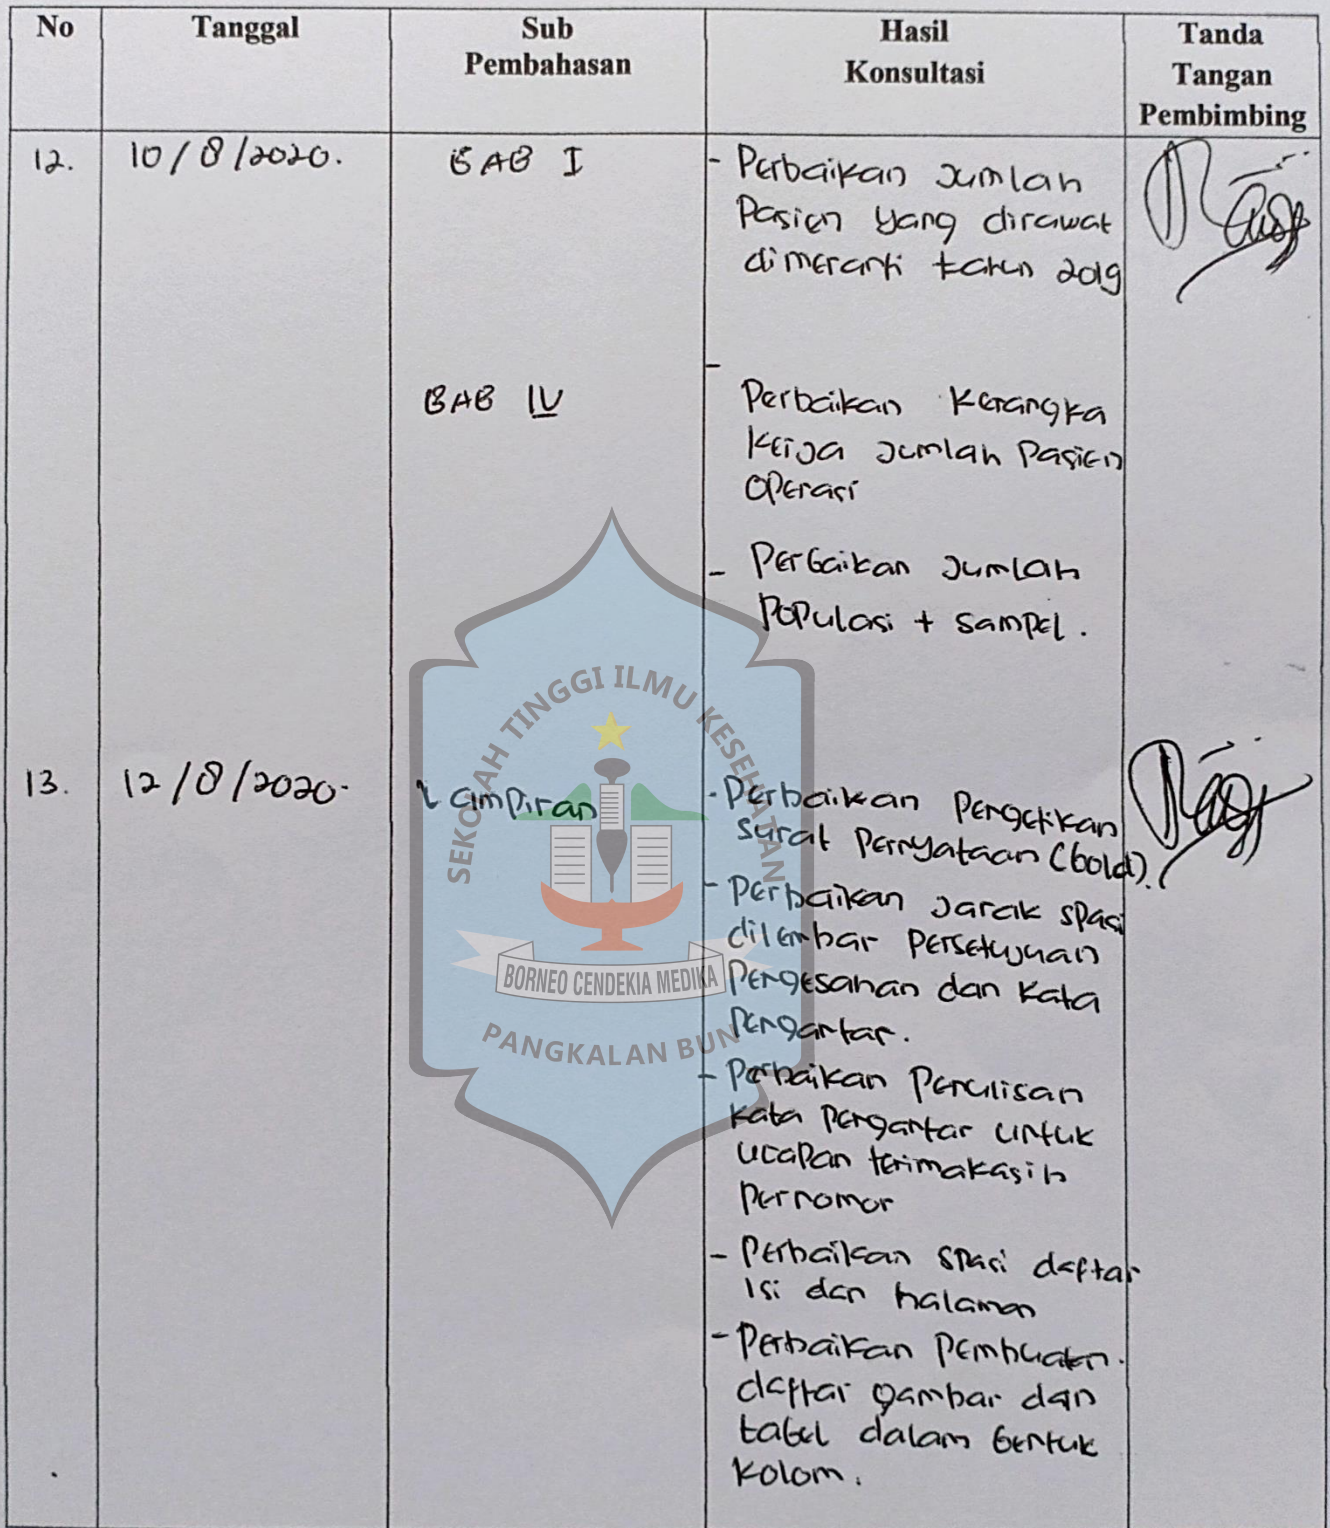 No
Tanggal
Sub
Pembahasan
Hasil
Konsultasi
Tanda
Tangan
Pembimbing
12.
10/8/2020.
BAB I
- Perbaikan Jumlah
Pasien yang dirawat
dimeranti tahun 2019
BAB IV
-
Perbaikan Kerangka
Kerja Jumlah Pasien
Operasi
- Perbaikan Jumlah
Populasi + Sampel.
13.
12/8/2020.
Lampiran
- Perbaikan Pengetikan
Surat Pernyataan (bold).
- Perbaikan Jarak spasi
dilembar Persetujuan
Pengesahan dan Kata
Pengantar.
- Perbaikan Penulisan
Kata Pengantar untuk
ucapan terimakasih
Pernomor
- Perbaikan spasi daftar
isi dan halaman
- Perbaikan Pembuatan
daftar gambar dan
tabel dalam bentuk
Kolom.
SEKOLAH TINGGI ILMU KESEHATAN
BORNEO CENDEKIA MEDIKA
PANGKALAN BUN